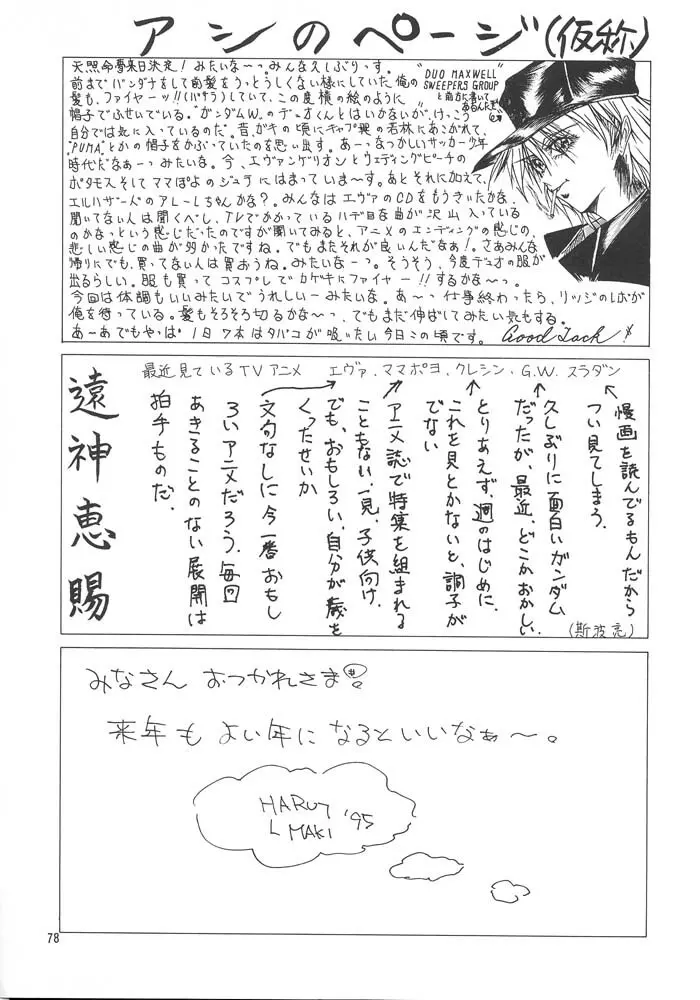 アシのページ(仮称)
天照命夢来日決定！みたいな～っ。みんな久しぶりっす。
前までバンダナをして前髪をうっとうしくない様にしていた俺の
髪も、ファイヤーッ!!(バサラ)していて、この度横の絵のように
帽子でふせいでいる。"ガンダムW"のデュオくんとはいかないが、けっこう
自分では気に入っているのだ。昔、ガキの頃にキャプ翼の若林にあこがれて、
"PUMA"とかの帽子をかぶっていたのを思い出す。あーなつかしいサッカー少年
時代だなぁーっみたいな。今、エヴァンゲリオンとウェディングピーチの
ポタモスそしてママぽよのジュテにはまっていま～す。あとそれに加えて、
エルハザードのアレーレちゃんかな？。みんなはエヴァのCDをもうきいたかな、
聞いてない人は聞くべし、TVでかかっているハデ目な曲が沢山入っている
のかなっという感じだったのですが聞いてみると、アニメのエンディングの感じの、
悲しい感じの曲が多かったですね。でもまたそれが良いんだなぁ!。さあみんな
帰りにでも、買ってない人は買おうね。みたいなーっ。そうそう、今度デュオの服が
出るらしい。服も買って コスプレでカゲキにファイヤー!!するかな～っ。
今回は体調もいいみたいでうれしいーみたいな。あ～っ仕事終わったら、リッジのレボが
俺を待っている。髪もそろそろ切るかな～っ、でもまだ伸ばしてみたい気もする。
あーあでもやっぱ 1日7本はタバコが吸いたい今日この頃です。 Good Luck!
"DUO MAXWELL"
SWEEPERS GROUP
と前方に書いて
あるんだぞ
遠神恵賜
最近見ているTVアニメ　エヴァ、ママポヨ、クレシン、G.W. スラダン
漫画を読んでるもんだから
つい見てしまう。
久しぶりに面白いガンダム
だったが、最近、どこかおかしい
とりあえず、週のはじめに、
これを見とかないと、調子が
でない
アニメ誌で特集を組まれる
こともない、一見、子供向け、
でも、おもしろい、自分が歳を
くったせいか
文句なしに今一番おもし
ろいアニメだろう、毎回
あきることのない展開は
拍手ものだ。
(斯波亮)
みなさん おつかれさま!
来年も よい年に なるといいなぁ～。
MAKI '95
78